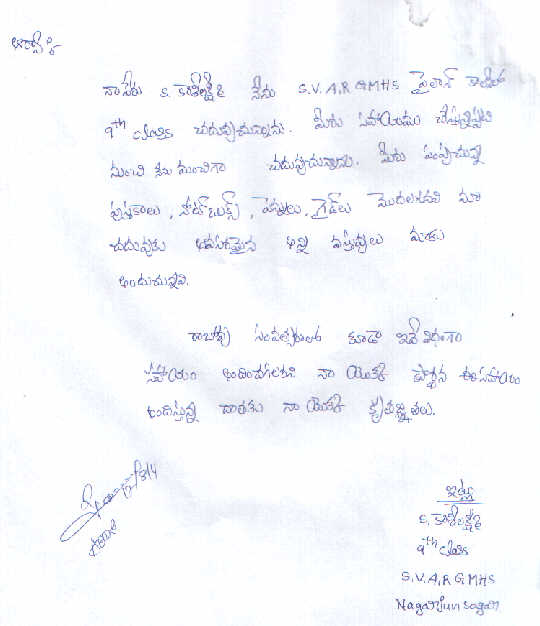 నా పేరు S. కాశీలక్ష్మి నేను S.V.A.R GMHS పైలాన్ కాలనీలో
9th class చదువుచున్నాను. మీరు సహాయము చేస్తున్నప్పటి
నుంచి నేను మంచిగా చదువుచున్నాను. మీరు పంపుచున్న
పుస్తకాలు, నోట్ బుక్స్, పెన్నులు, గైడ్‌లు మొదలగునవి మా
చదువుకు అవసరమైన అన్ని వస్తువులు మాకు
అందుచున్నవి.
రాబోవు సంవత్సరాలలో కూడా ఇదే విధంగా
సహాయం అందించగలరని నా యొక్క ప్రార్థన ఈ సహాయం
అందిస్తున్న దాతకు నా యొక్క కృతజ్ఞతలు.
ఇట్లు
S. కాశీలక్ష్మి
9th class
S.V.A.R GMHS
Nagarjun sagar